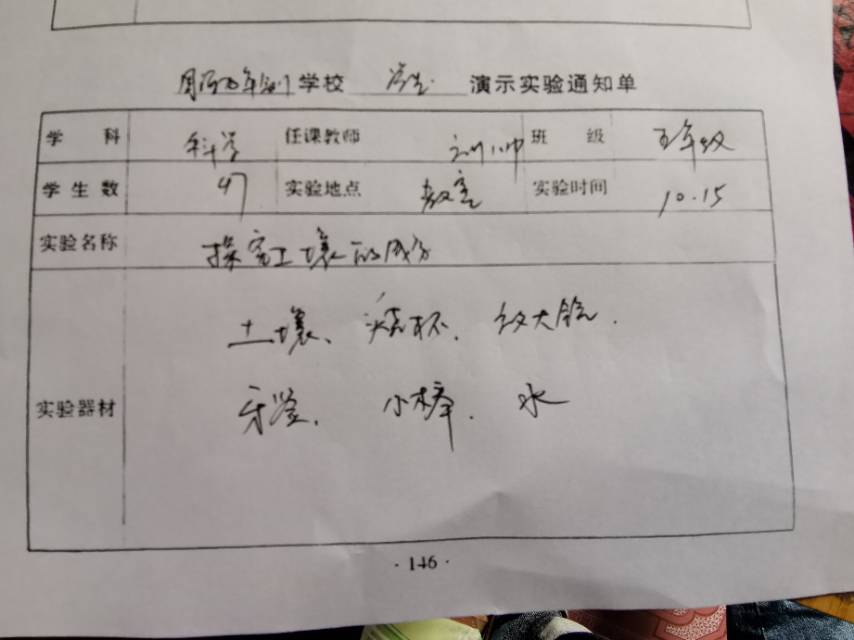 学校 学生 演示实验通知单
学 科 科学 任课教师 刘帅 班 级 五年级
学生数 47 实验地点 教室 实验时间 10.15
实验名称 探究土壤的成分
土壤、烧杯、放大镜.
实验器材
牙签. 小棒. 水
·146·